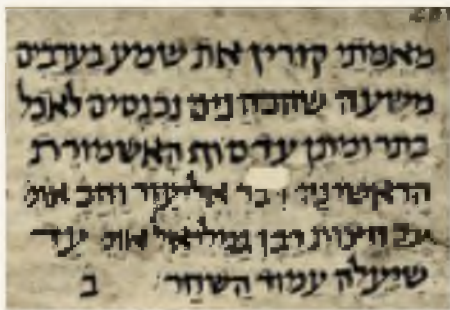 מאמתי קורין את שמע בערבים
משעה שהכהנים נכנסים לאכל
בתרומתן עד סוף האשמורת
הראשונה אליעזר וחכ אומ
עד חצות רבן גמליאל אומ עד
שיעלה עמוד השחר ב